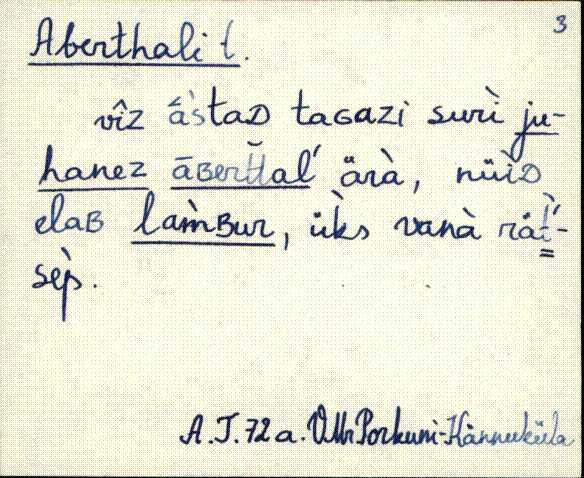 3
Aberthali t.
vîz ástaD taGazi suri̇̀ ju-
hanez āʙerťťal' ärà, nüi̇̀D
elaʙ lam̀ʙur, ük̀s vanà rát'-
sèp̀.
A.T. 72 a. VMr Porkuni-Kännuküla